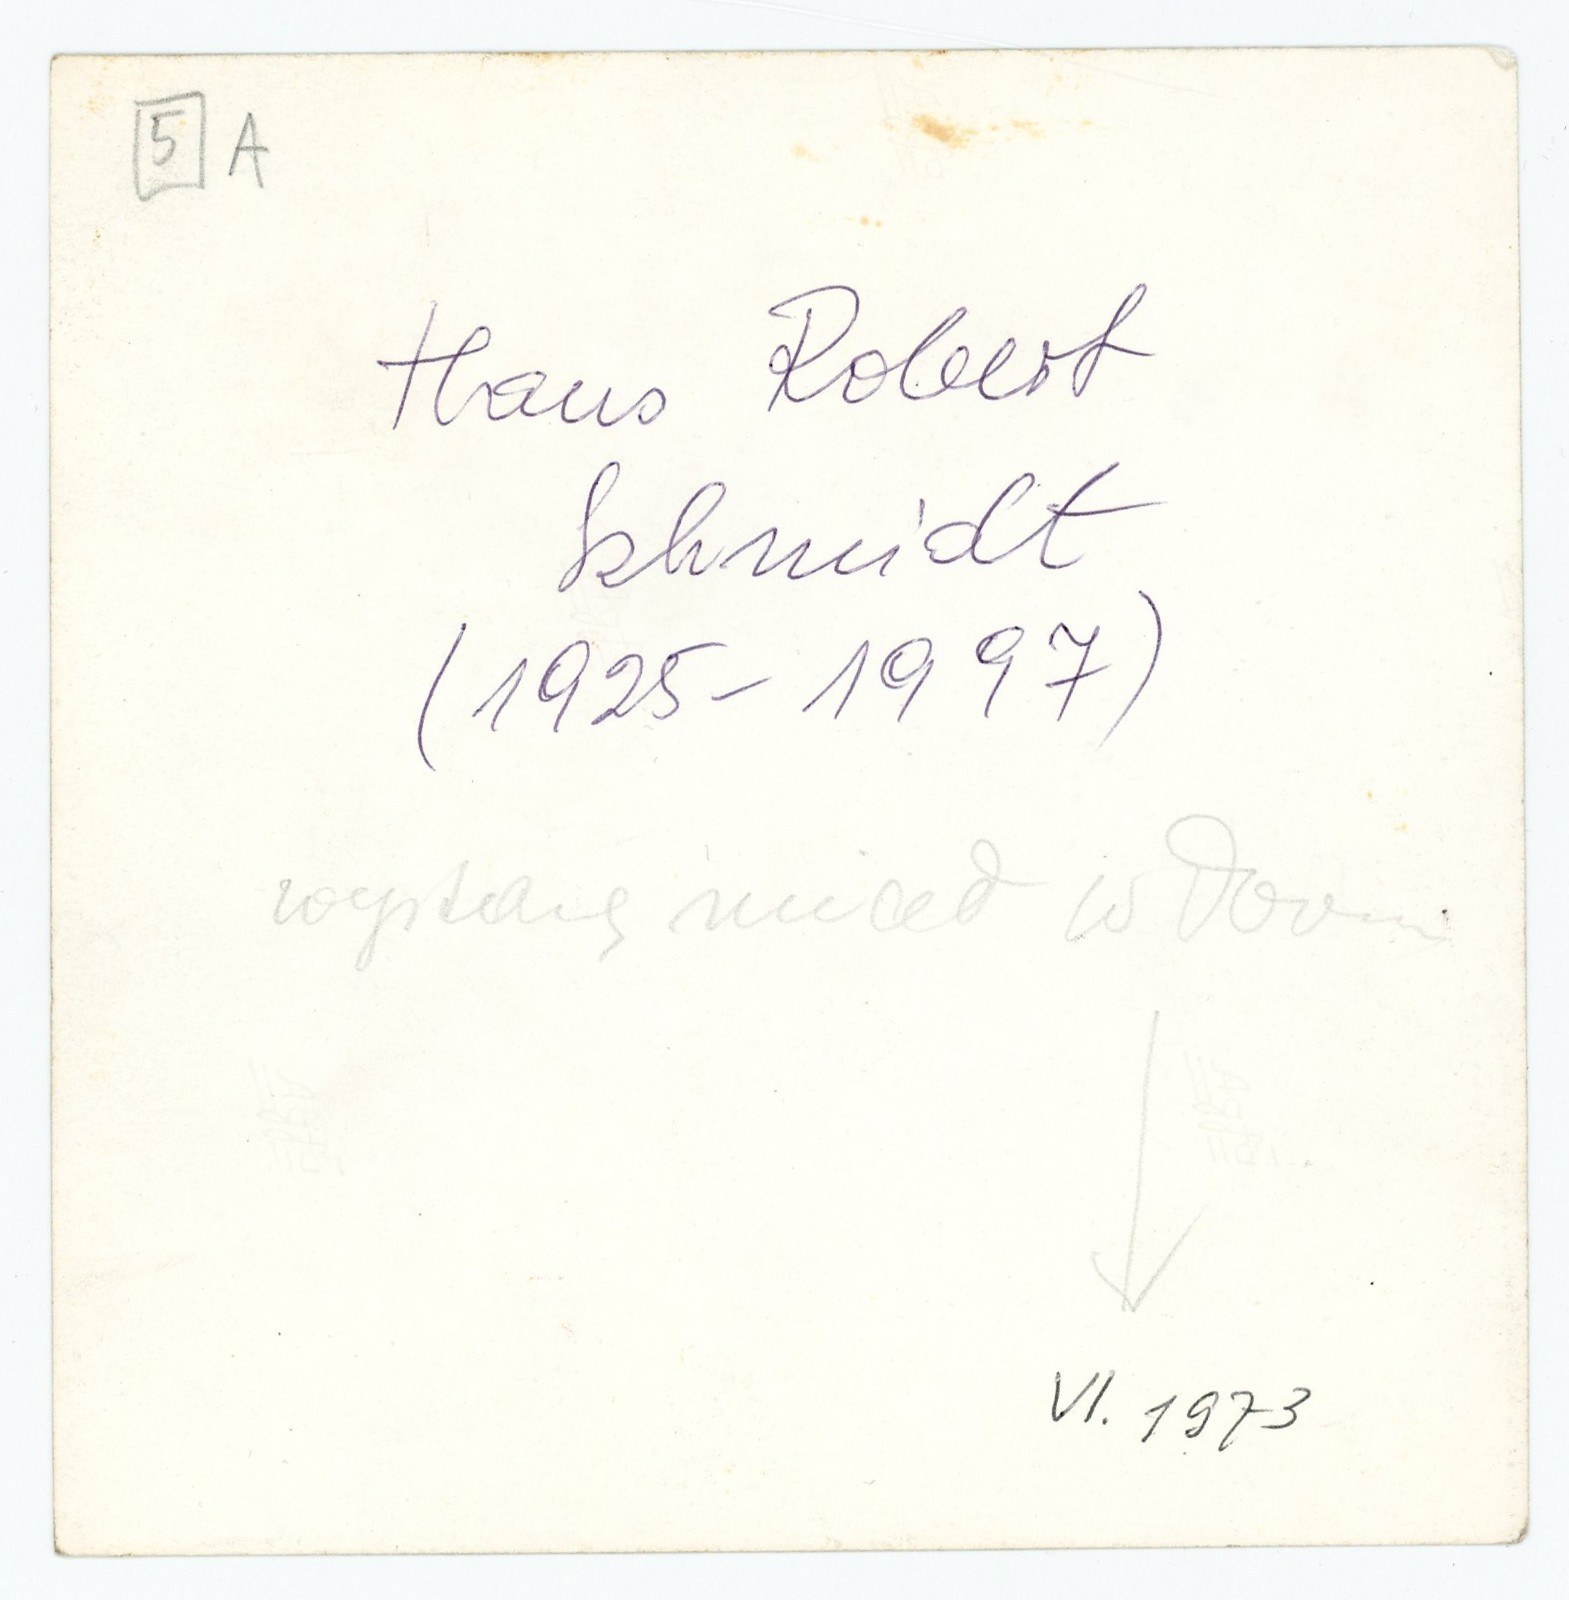 5 A
Hans Robert
Schmidt
(1925-1997)
wystawę miał w
VI. 1973